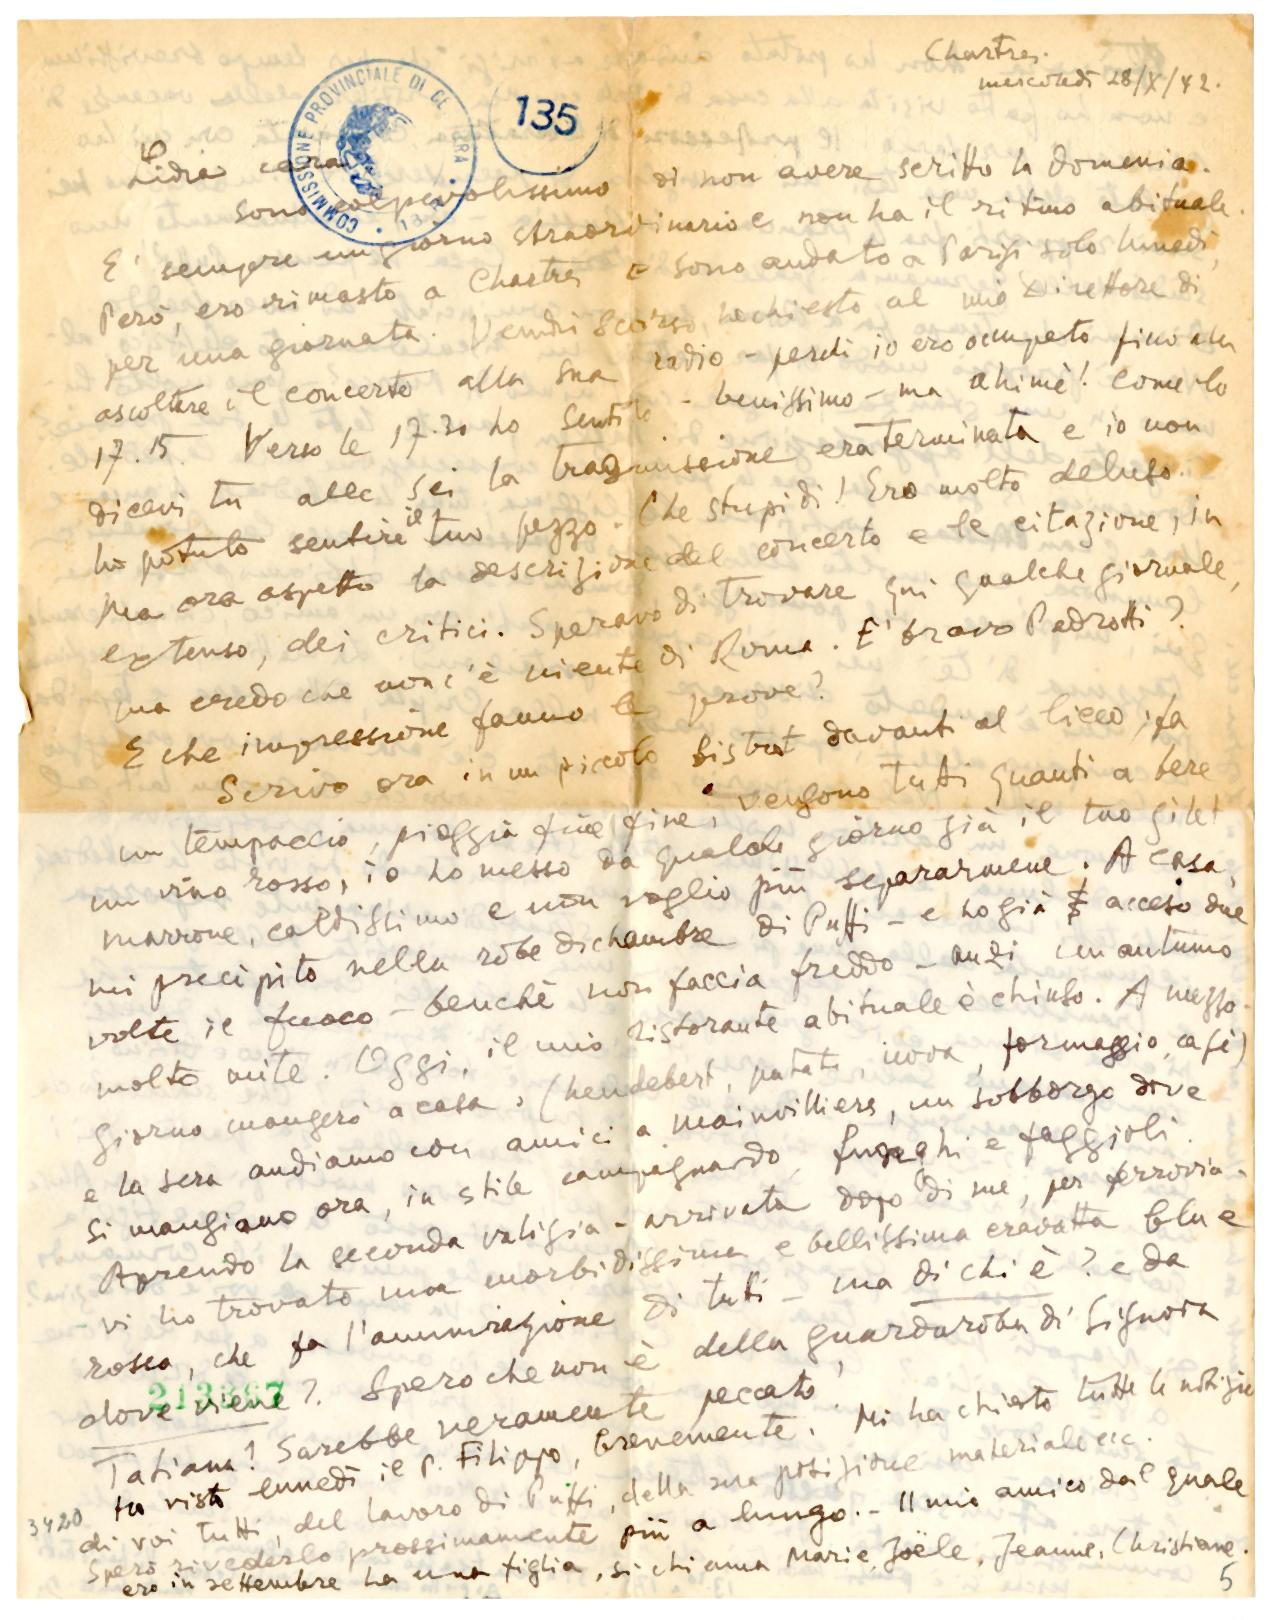 Chartres.
mercoledì 28/X/42.
COMMISSIONE PROVINCIALE DI CE
135
Lidia cara
sono colpevolissimo di non avere scritto la domenica.
E' sempre un giorno straordinario e non ha il ritmo abituale.
Però, ero rimasto a Chartres e sono andato a Parigi solo lunedì,
per una giornata. Vendri scorso, ho chiesto al mio Direttore di
ascoltare il concerto alla sua radio - perchè io ero occupato fino alle
17.15. Verso le 17.30 ho sentito - benissimo - ma ahimè! Come lo
dicevi tu alle sei la trasmissione era terminata e io non
ho potuto sentire il tuo pezzo. Che stupidi! Ero molto deluso.
Ma ora aspetto la descrizione del concerto e le citazione, in
extenso, dei critici. Speravo di trovare qui qualche giornale,
ma credo che non c'è niente di Roma. E' bravo Pedrotti?
E che impressione fanno le prove?
Scrivo ora in un piccolo bistrot davanti al liceo, fa
un tempaccio, pioggia fine fine, vengono tutti quanti a bere
un vino rosso, io ho messo da qualche giorno già il tuo gilet
marrone, caldissimo e non voglio più separarmene. A casa,
mi precipito nella robe di chambre di Puffi - e ho già acceso due
volte il fuoco - benchè non faccia freddo - anzi un autunno
molto mite. Oggi, il mio ristorante abituale è chiuso. A mezzo-
giorno mangerò a casa, (heudebert, patate, uova, formaggio, cafè)
e la sera andiamo con amici a Mainvilliers, un sobborgo dove
si mangiano ora, in stile campagnardo, funghi e faggioli.
Aprendo la seconda valigia - arrivata dopo di me, per ferrovia -
vi ho trovato una morbidissima e bellissima cravatta blu e
rossa, che fa l'ammirazione di tutti - ma di chi è? e da
dove viene? Spero che non è della guardaroba di Signora
213887
Tatiana! Sarebbe veramente peccato!
Ho visto lunedì il P. Filippo, brevemente. Mi ha chiesto tutte le notizie
di voi tutti, del lavoro di Puffi, della sua posizione materiale ecc.
3420
Spero rivederlo prossimamente più a lungo. - Il mio amico dal quale
ero in settembre ha una figlia, si chiama Marie, Joële, Jeanne, Christiane.
5